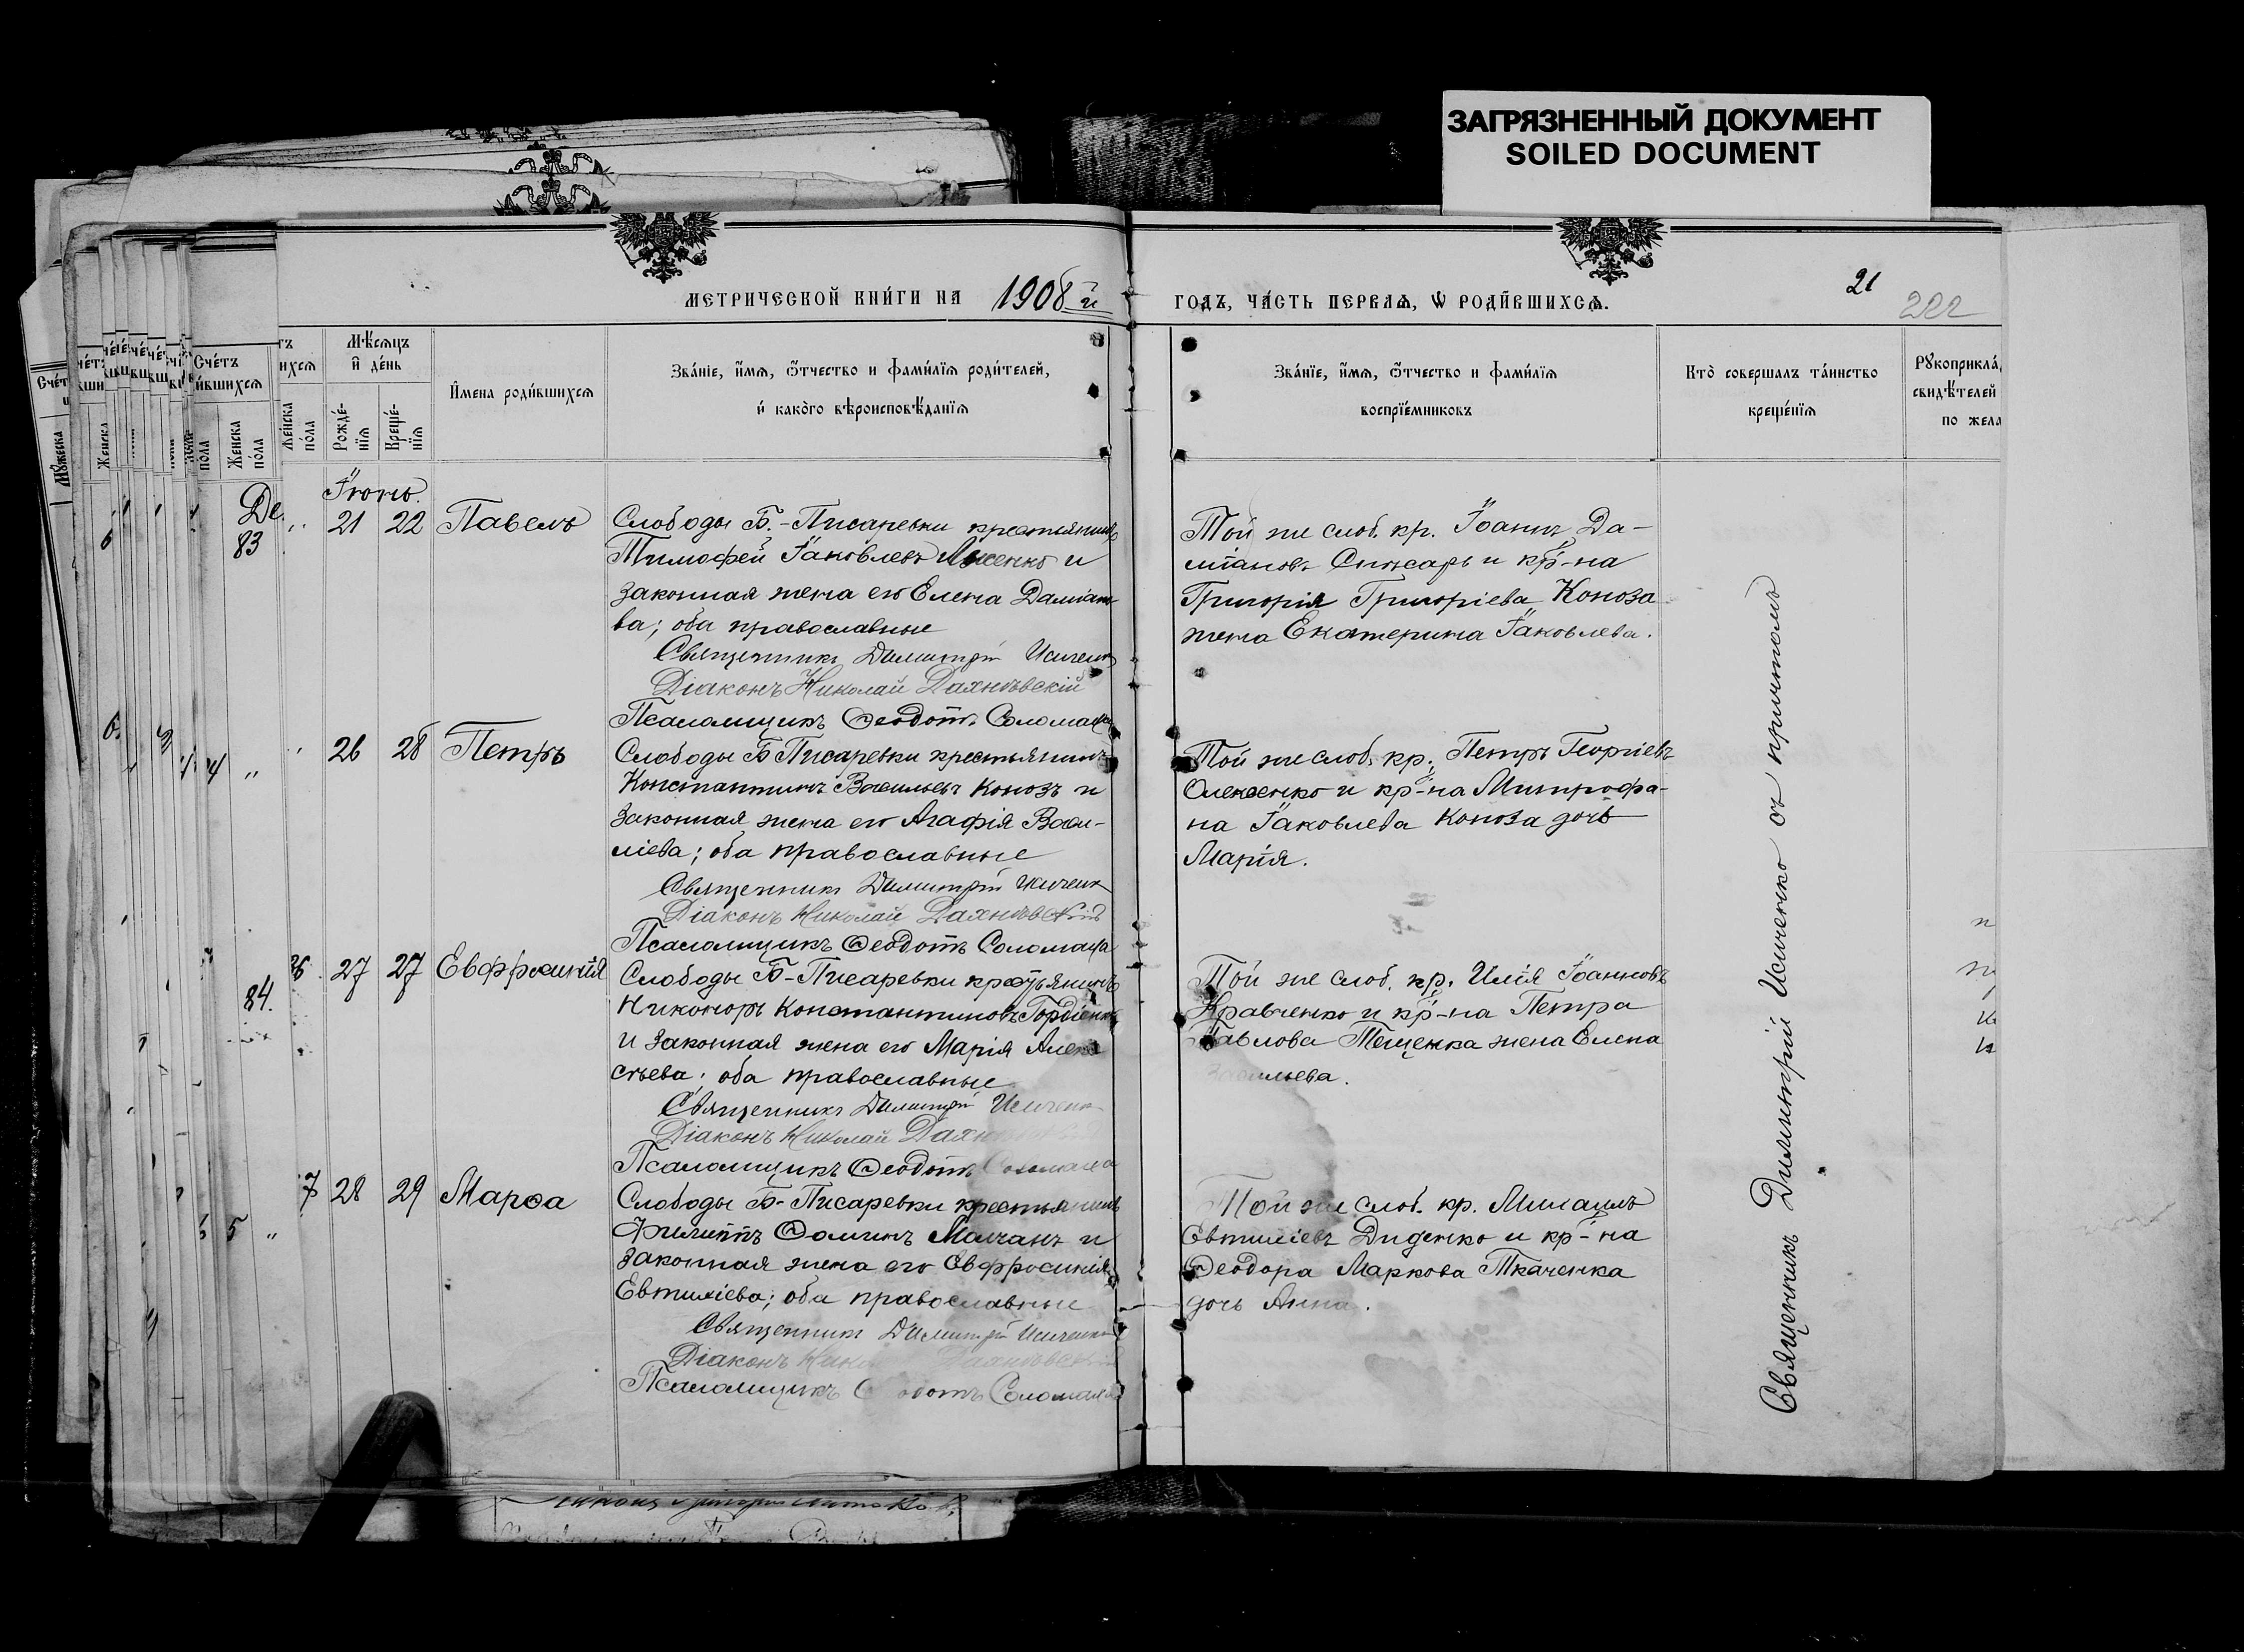 ЗАГРЯЗНЕННЫЙ ДОКУМЕНТ
SOILED DOCUMENT
МЕТРИЧЕСКОЙ КНИ́ГИ НА 1908 й
ГОДЪ, ЧА́СТЬ ПЕРВАѦ, Ѡ РОДИ́ВШИХСѦ.
21
222
Счéтъ
Мѣ́сѧцъ
и҆ де́нь
Же́нска
по́ла
Рожде́-
нїѧ
Креще́-
нїѧ
И҆мена роди́вшихсѧ
Зва́нїе, и҆́мѧ, ѻ҆́тчество и фами́лїѧ роди́телей,
и҆ како́го вѣроисповѣ́данїѧ
Зва́нїе, и҆́мѧ, ѻ҆́тчество и фами́лїѧ
воспрїе́мниковъ
Кто̀ соверша́лъ та́инство
креще́нїѧ
Рꙋкоприкла́
свидѣ́телей
по жела
Іюнь.
83
21 22 Павелъ
Слободы Б.-Писаревки крестьянинъ
Тимофей Іаковлевъ и
законная жена его Елена Даміано-
ва; оба православные
Священникъ Димитрій Исиченко
Діаконъ Николай
Псаломщикъ Ѳеодотъ Соломаха
Той же слоб. кр. Іоаннъ Да-
міановъ Слюсарь и кр-на
Григорія Григоріева Коноза
жена Екатерина Іаковлева.
4 " 26 28 Петръ
Слободы Б Писаревки крестьянинъ
Константинъ Васильевъ Конозъ и
законная жена его Агафія Васи-
ліева; оба православные
Священникъ Димитрій Исиченко
Діаконъ Николай
Псаломщикъ Ѳеодотъ Соломаха
Той же слоб. кр. Петръ Георгіевъ
Олексенко и кр-на Митрофа-
на Іаковлева Коноза дочь
Марія.
84.
27 27 Евфросинія
Слободы Б-Писаревки крестьянинъ
Никоноръ Константиновъ Гордіенко
и законная жена его Марія Алек
сѣева; оба православные
Священникъ Димитрій Исиченко
Діаконъ Николай
Псаломщикъ Ѳеодотъ Соломаха
Той же слоб. кр. Илія Іоанновъ
Кравченко и кр-на Петра
Павлова Тещенка жена Елена
5 " 7 28 29 Марѳа
Слободы Б-Писаревки крестьянинъ
Филиппъ Ѳоминъ Молчанъ и
законная жена его Евфросинія
Евтихіева; оба православные
Священникъ Димитрій Исиченко
Діаконъ
Псаломщикъ Соломаха
Той же слоб. кр. Михаилъ
Евтихіевъ Диденко и кр-на
Ѳеодора Маркова Ткаченка
дочь Анна.
Священникъ Димитрій Исиченко съ причтомъ